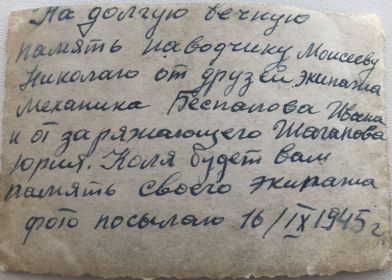 На долгую вечную
память наводчику Моисееву
Николаю от друзей экипажа
механика Беспалова Ивана
и от заряжающего Шагапова
Юрия. Коля будет вам
память своего экипажа
фото посылаю 16/IX 1945 г